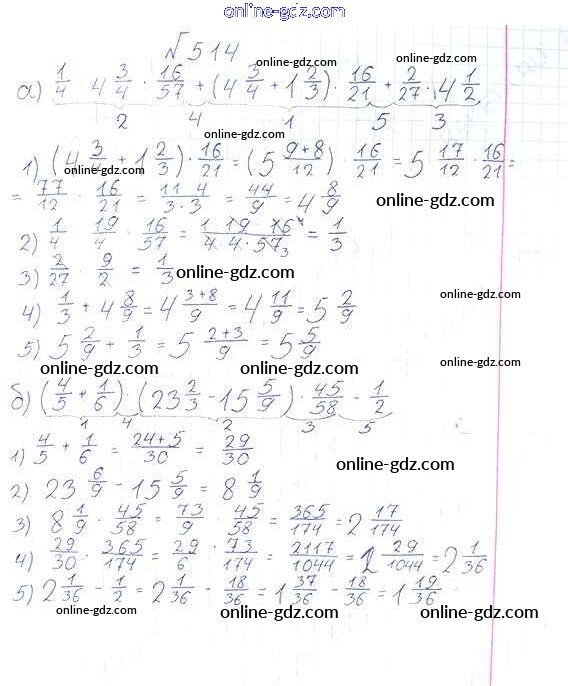 online-gdz.com
№514
а) 1/4 · 4 3/4 · 16/57 + (4 3/4 + 1 2/3) · 16/21 + 2/27 · 4 1/2
online-gdz.com
2 4 1 5 3
online-gdz.com
1) (4 3/4 + 1 2/3) · 16/21 = (5 9+8/12) · 16/21 = 5 17/12 · 16/21 =
online-gdz.com
= 77/12 · 16/21 = 11·4/3·3 = 44/9 = 4 8/9
online-gdz.com
2) 1/4 · 19/4 · 16/57 = 1·19·16⁴/4·4·57₃ = 1/3
3) 2/27 · 9/2 = 1/3
online-gdz.com
4) 1/3 + 4 8/9 = 4 3+8/9 = 4 11/9 = 5 2/9
online-gdz.com
5) 5 2/9 + 1/3 = 5 2+3/9 = 5 5/9
online-gdz.com online-gdz.com online-gdz.com
б) (4/5 + 1/6) · (23 2/3 - 15 5/9) · 45/58 - 1/2
1 4 2 3 5
1) 4/5 + 1/6 = 24+5/30 = 29/30
online-gdz.com
2) 23 6/9 - 15 5/9 = 8 1/9
3) 8 1/9 · 45/58 = 73/9 · 45/58 = 365/174 = 2 17/174
4) 29/30 · 365/174 = 29/6 · 73/174 = 2117/1044 = 2 29/1044 = 2 1/36
5) 2 1/36 - 1/2 = 2 1/36 - 18/36 = 1 37/36 - 18/36 = 1 19/36
online-gdz.com online-gdz.com online-gdz.com